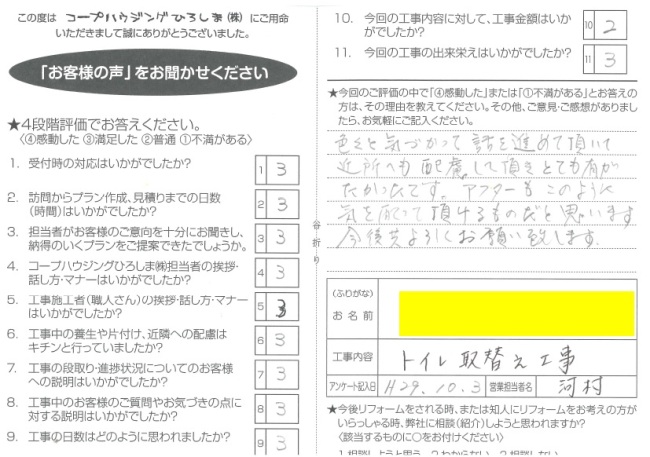 この度は コープハウジングひろしま(株) にご用命
いただきまして誠にありがとうございました。
「お客様の声」をお聞かせください
★4段階評価でお答えください。
〈④感動した ③満足した ②普通 ①不満がある〉
1. 受付時の対応はいかがでしたか?
1 3
2. 訪問からプラン作成、見積りまでの日数
(時間)はいかがでしたか?
2 3
3. 担当者がお客様のご意向を十分にお聞きし、
納得のいくプランをご提案できたでしょうか。
3 3
4. コープハウジングひろしま㈱担当者の挨拶・
話し方・マナーはいかがでしたか?
4 3
5. 工事施工者(職人さん)の挨拶・話し方・マナー
はいかがでしたか?
5 3
6. 工事中の養生や片付け、近隣への配慮は
キチンと行っていましたか?
6 3
7. 工事の段取り・進捗状況についてのお客様
への説明はいかがでしたか?
7 3
8. 工事中のお客様のご質問やお気づきの点に
対する説明はいかがでしたか?
8 3
9. 工事の日数はどのように思われましたか?
9 3
谷折り
10. 今回の工事内容に対して、工事金額はいか
がでしたか?
10 2
11. 今回の工事の出来栄えはいかがでしたか?
11 3
★今回のご評価の中で「④感動した」または「①不満がある」とお答えの
方は、その理由を教えてください。その他、ご意見・ご感想がありまし
たら、お気軽にご記入ください。
色々と気づかって話を進めて頂いて
近所へも配慮して頂きとても有が
たかったです。アフターもこのように
気を配って頂けるものだと思います
今後共よろしくお願い致します。
(ふりがな)
お名前
工事内容 トイレ取替え工事
アンケート記入日 H29.10.3 営業担当者名 河村
★今後リフォームをされる時、または知人にリフォームをお考えの方が
いらっしゃる時、弊社に相談(紹介)しようと思われますか?
〈該当するものに○をお付けください〉
1.相談しようと思う 2.わからない 3.相談しない